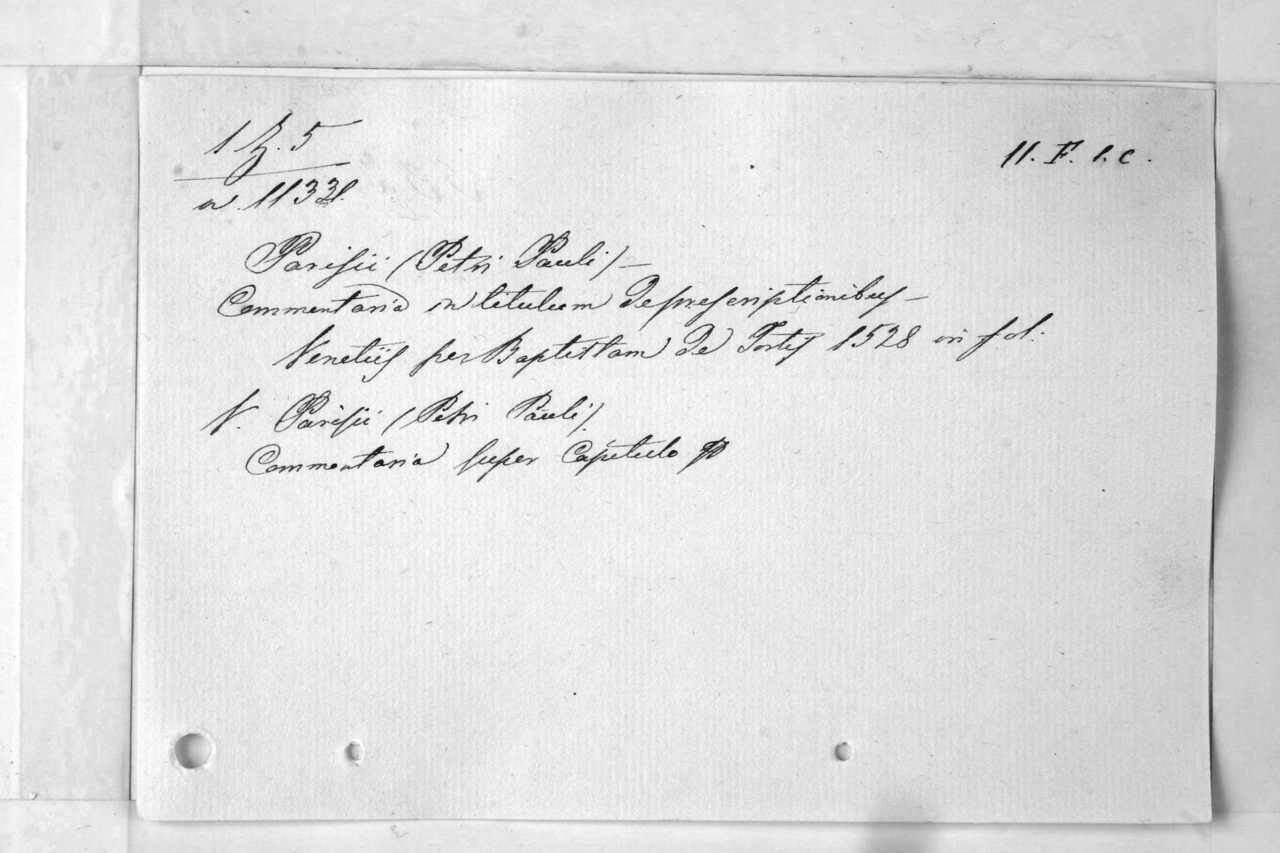 1 Z. 5
11. F. 1. c.
n. 1133
Parisii (Petri Pauli) —
Commentaria in titulum de prescriptionibus —
Venetiis per Baptistam de Tortis 1528 in fol:
V. Parisii (Petri Pauli)
Commentaria super Capitulo